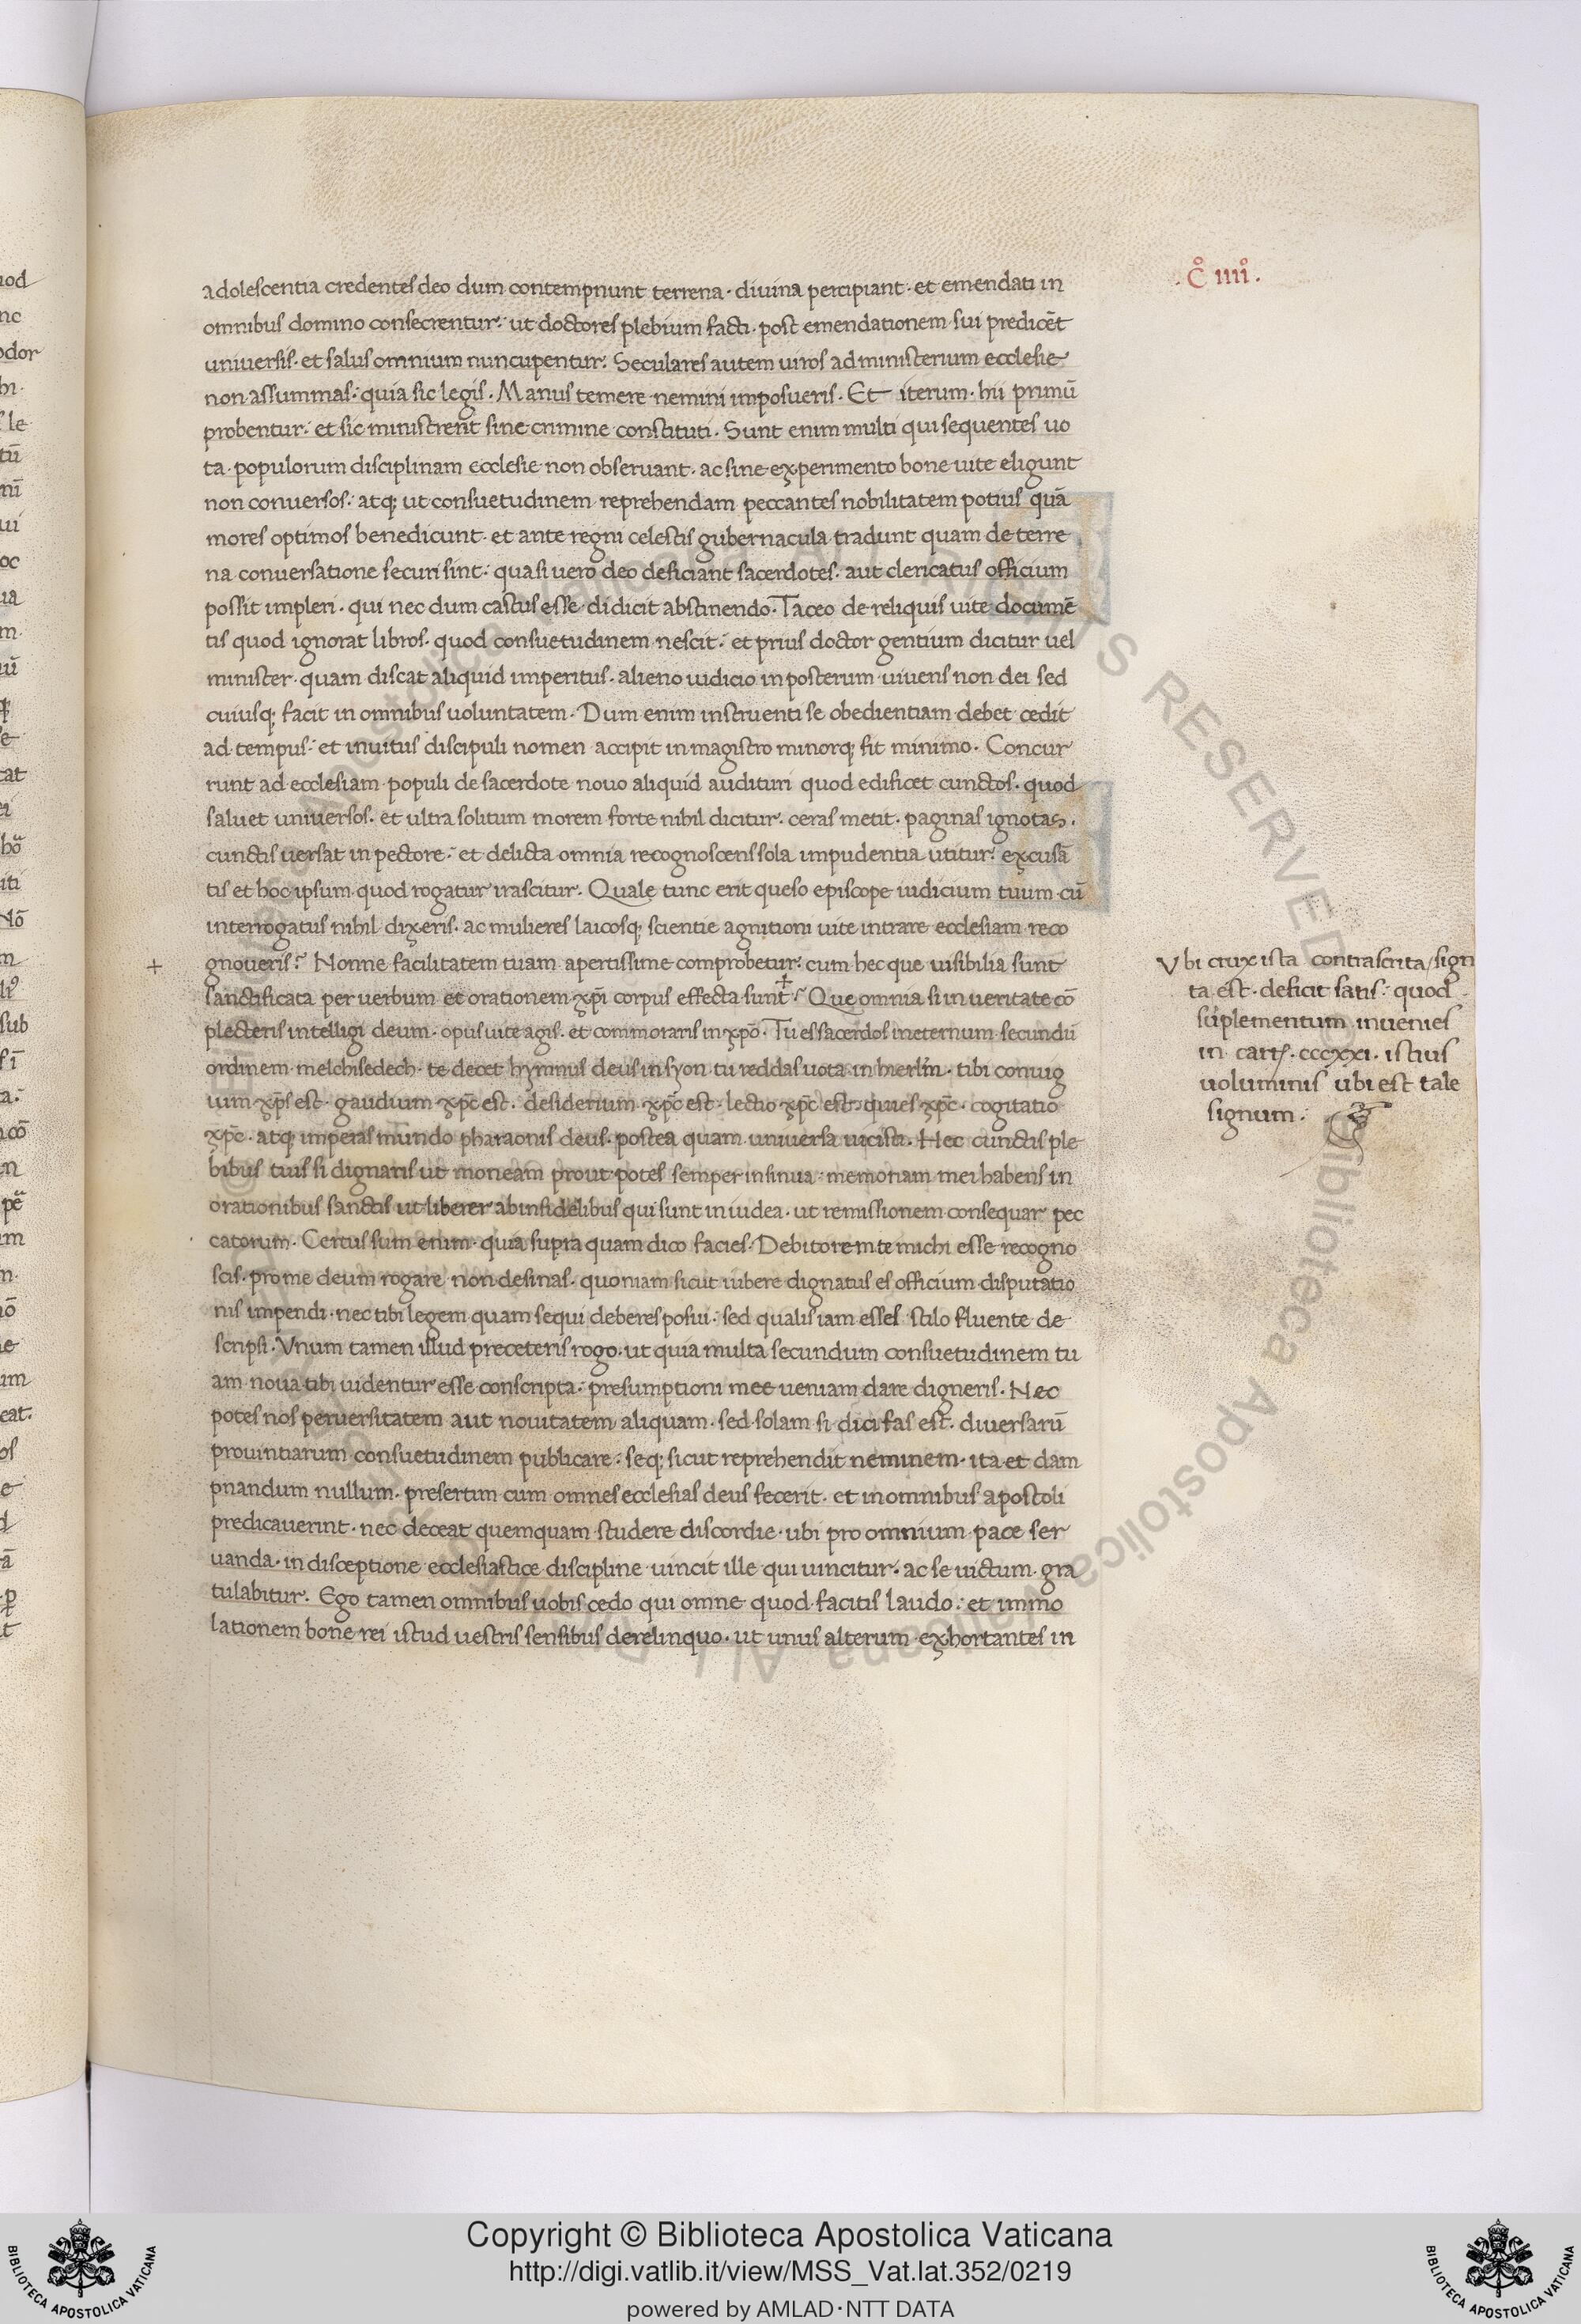 .C° IIII°.
adolescentia credentes deo dum contempnunt terrena. divina percipiant. et emendati in
omnibus domino consecrentur: ut doctores plebium facti. post emendationem sui predicēt
universis. et salus omnium nuncupentur. Seculares autem viros ad ministerium ecclesie
non assummas: quia sic legis. Manus temere nemini imposueris. Et iterum. hii primū
probentur: et sic ministrent sine crimine constituti. Sunt enim multi qui sequentes uo
ta populorum disciplinam ecclesie non observant. ac sine experimento bone uite eligunt
non conversos: atq; ut consuetudinem reprehendam peccantes nobilitatem potius quā
mores optimos benedicunt. et ante regni celestis gubernacula tradunt quam de terre
na conversatione securi sint: quasi vero deo deficiant sacerdotes. aut clericatus officium
possit impleri. qui nec dum castus esse didicit abstinendo. Taceo de reliquis uite documē
tis quod ignorat libros. quod consuetudinem nescit: et prius doctor gentium dicitur uel
minister. quam discat aliquid imperitus. alieno iudicio in posterum vivens non dei sed
cuiusq; facit in omnibus uoluntatem. Dum enim instruenti se obedientiam debet cedit
ad tempus: et invitus discipuli nomen accipit in magistro minorq; fit minimo. Concur
runt ad ecclesiam populi de sacerdote novo aliquid audituri quod edificet cunctos. quod
salvet universos. et ultra solitum morem forte nihil dicitur. ceras metit. paginas ignotas.
cunctis versat in pectore: et delicta omnia recognoscens sola impudentia utitur: excusā
tis et hoc ipsum quod rogatur irascitur. Quale tunc erit queso episcope iudicium tuum cū
interrogatus nihil dixeris. ac mulieres laicosq; scientie agnitioni uite intrare ecclesiam reco
+ gnoveris? Nonne facilitatem tuam apertissime comprobetur: cum hec que visibilia sunt
sanctificata per uerbum et orationem xp̄i corpus effecta sunt +? Que omnia si in veritate cō
plecteris intelligi deum. opus uite agis. et commoraris in xp̄o. Tu es sacerdos in eternum secundū
ordinem melchisedech. te decet hymnus deus in syon tu reddas uota in hierl̄m. tibi conuig
uium xp̄s est. gaudium xp̄c est. desiderium xp̄c est. lectio xp̄c est. quies xp̄c. cogitatio
xp̄c. atq; imperas mundo pharaonis deus. postea quam universa uicisti. Hec cunctis ple
bibus tuis si dignaris ut moneam prout potes semper insinua: memoriam mei habens in
orationibus sanctis ut liberer ab infidelibus qui sunt in iudea. ut remissionem consequar pec
catorum. Certus sum enim. quia supra quam dico facies. Debitorem te michi esse recogno
scis. pro me deum rogare non desinas. quoniam sicut iubere dignatus es officium disputatio
nis impendi. nec tibi legem quam sequi deberes posui: sed qualis iam esses stilo fluente de
scripsi. Vnum tamen illud preceteris rogo. ut quia multa secundum consuetudinem tu
am noua tibi uidentur esse conscripta: presumptioni mee ueniam dare digneris. Nec
potes nos perversitatem aut novitatem aliquam. sed solam si dici fas est. diversarū
provintiarum consuetudinem publicare: seq; sicut reprehendit neminem. ita et dam
pnandum nullum. presertim cum omnes ecclesias deus fecerit. et in omnibus apostoli
predicaverint. nec deceat quemquam studere discordie. ubi pro omnium pace ser
uanda. in disceptione ecclesiastice discipline vincit ille qui vincitur. ac se victum gra
tulabitur. Ego tamen omnibus uobis cedo qui omne quod facitis laudo: et immo
lationem bone rei istud uestris sensibus derelinquo. ut unus alterum exhortantes in
Vbi crux ista contrascrita / sign
ta est. deficit satis: quod
suplementum invenies
in cartis. cccxxi. istius
uoluminis ubi est tale
signum:
Copyright © Biblioteca Apostolica Vaticana
http://digi.vatlib.it/view/MSS_Vat.lat.352/0219
powered by AMLAD·NTT DATA
BIBLIOTECA APOSTOLICA VATICANA
BIBLIOTECA APOSTOLICA VATICANA